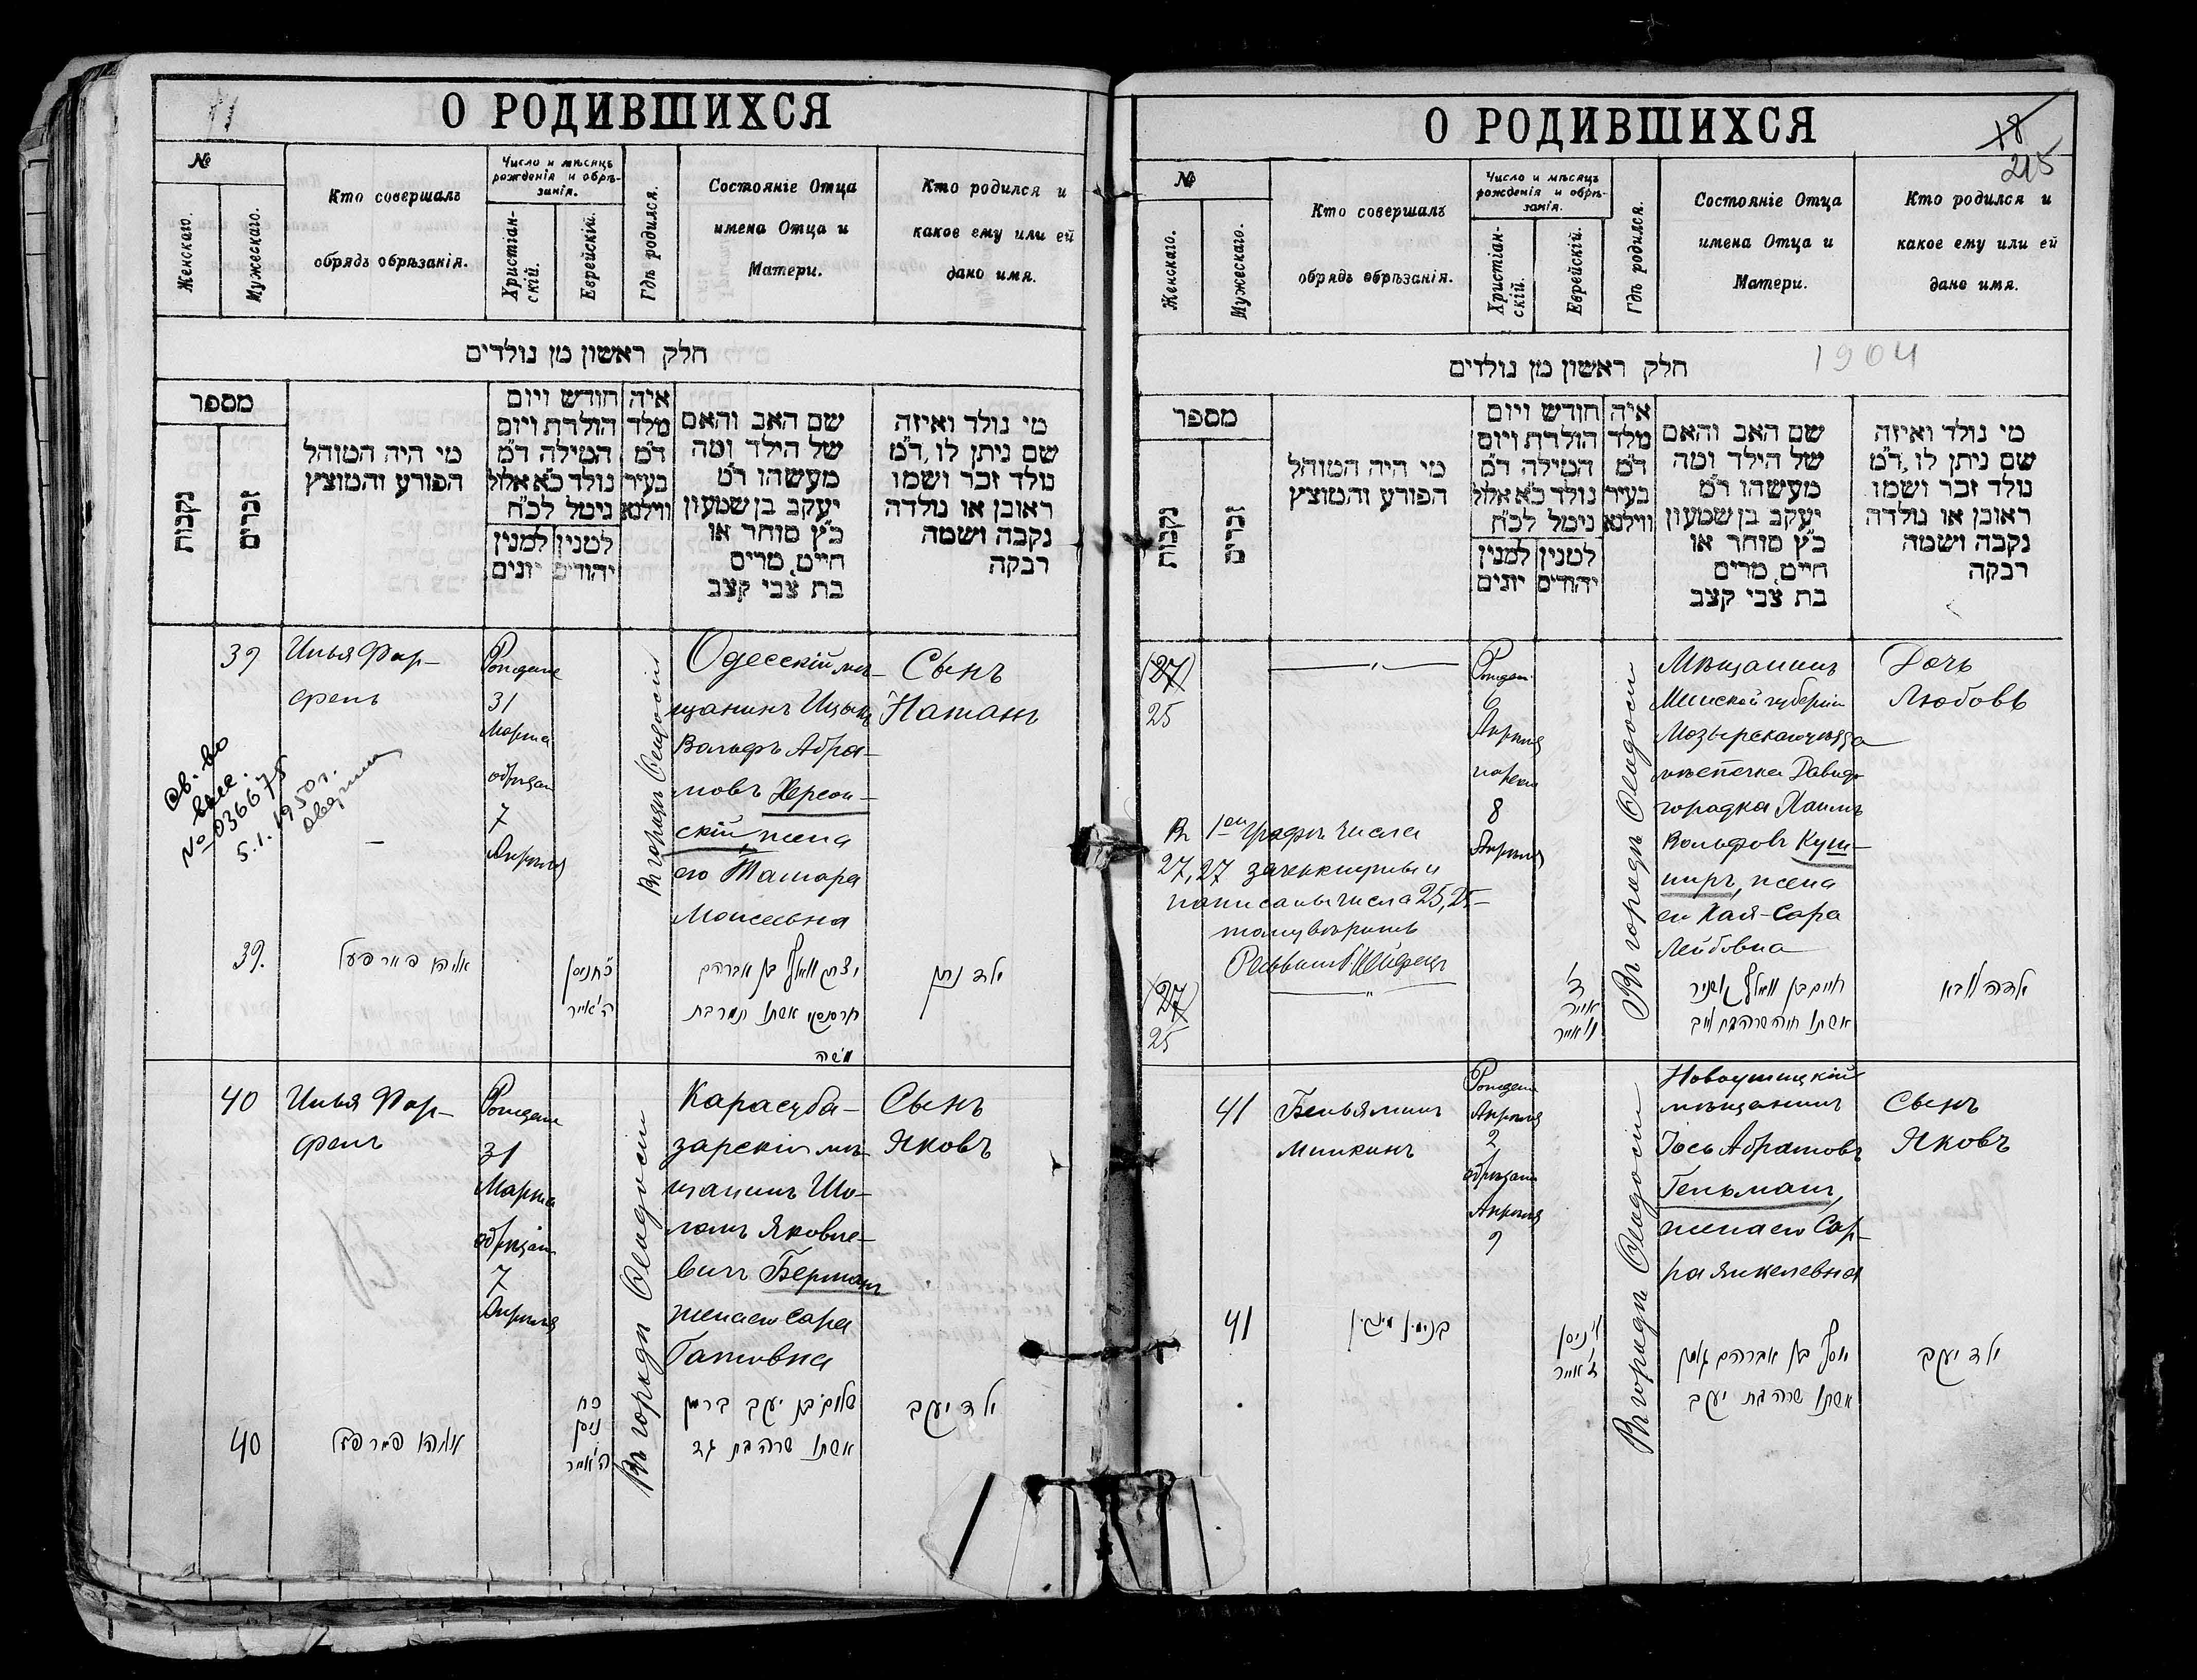 О РОДИВШИХСЯ
№
Женскаго.
Мужескаго.
Кто совершалъ
обрядъ обрѣзанія.
Число и мѣсяцъ
рожденія и обрѣ-
занія.
Христіан-
скій.
Еврейскій.
Гдѣ родился.
Состояніе Отца
имена Отца и
Матери.
Кто родился и
какое ему или ей
дано имя.
חלק ראשון מן נולדים
מספר
נקבות
זכרים
מי היה המוהל
הפורע והמוצץ
חודש ויום
הולדת ויום
המילה ד"מ
נולד כ"א אלול
נימל לכ"ח
למנין
יונים
למנין
יהודים
איה
מלד
ד"מ
בעיר
ווילנא
שם האב והאם
של הילד ומה
מעשהו ד"מ
יעקב בן שמעון
כ"ץ סוחר או
חייט, מרים
בת צבי קצב
מי נולד ואיזה
שם ניתן לו, ד"מ
נולד זכר ושמו
ראובן או נולדה
נקבה ושמה
רבקה
39
Илья Фар-
фель
31
Марта
7
Апрѣля
Въ городѣ Ѳеодосіи
Одесскій мѣ-
щанинъ Ицыкъ
Вольфъ Абра-
мовъ Херсон-
скій, жена
его Тамара
Моисеевна
Сынъ
Натанъ
Св. во
№ 036675
5.1.1950 г.
39.
אליהו פארפעל
ה' אייר
יצחק וואלף בן אברהם
אשתו תמר בת
משה
ילד נתן
40
Илья Фар-
фель
31
Марта
7
Апрѣля
Въ городѣ Ѳеодосіи
Карасуба-
зарскій мѣ-
щанинъ Шо-
ломъ Яковле-
вичъ Берманъ
жена его Сара
Сынъ
Яковъ
40
אליהו פארפעל
כח
ניסן
ה' אייר
שלום בן יעקב ברמן
אשתו שרה בת גד
ילד יעקב
О РОДИВШИХСЯ
18
215
№
Женскаго.
Мужескаго.
Кто совершалъ
обрядъ обрѣзанія.
Число и мѣсяцъ
рожденія и обрѣ-
занія.
Христіан-
скій.
Еврейскій.
Гдѣ родился.
Состояніе Отца
имена Отца и
Матери.
Кто родился и
какое ему или ей
дано имя.
חלק ראשון מן נולדים
1904
מספר
נקבות
זכרים
מי היה המוהל
הפורע והמוצץ
חודש ויום
הולדת ויום
המילה ד"מ
נולד כ"א אלול
נימל לכ"ח
למנין
יונים
למנין
יהודים
איה
מלד
ד"מ
בעיר
ווילנא
שם האב והאם
של הילד ומה
מעשהו ד"מ
יעקב בן שמעון
כ"ץ סוחר או
חייט, מרים
בת צבי קצב
מי נולד ואיזה
שם ניתן לו, ד"מ
נולד זכר ושמו
ראובן או נולדה
נקבה ושמה
רבקה
(27)
25
6
Апрѣля
8
Апрѣля
Въ городѣ Ѳеодосіи
Мѣщанинъ
Минской губерніи
Мозырскаго уѣзда
мѣстечка Давидъ
городка Хаимъ
Вольфовъ Куш-
ниръ, жена
его Хая-Сара
Лейбовна
Дочь
Любовь
Въ 1ой графѣ числа
27, 27 зачеркнуты и
написаны числа 25, 25 –
тому вѣрить
(27)
25
אייר
חיים בן וואלף קושניר
אשתו חיה שרה בת לייב
ילדה ליבא
41
Беньяминъ
Минкинъ
Апрѣля
2
Апрѣля
9
Въ городѣ Ѳеодосіи
Новоушицкій
мѣщанинъ
Іось Абрамовъ
Гельманъ,
жена его Сар-
ра Янкелевна
Сынъ
Яковъ
41
בנימין מינקין
ניסן
אייר
יוסף בן אברהם
אשתו שרה בת יעקב
ילד יעקב